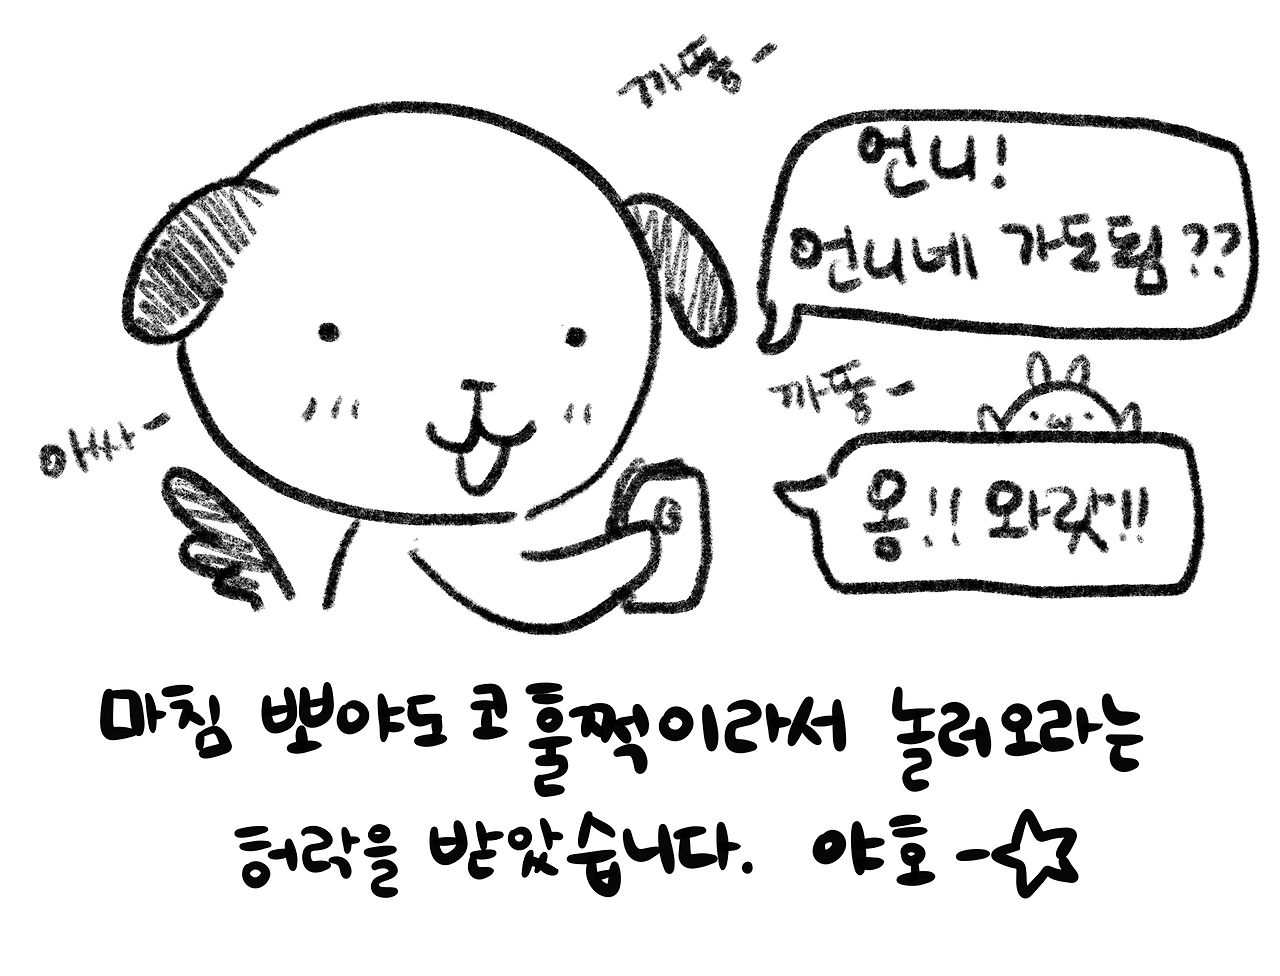 까똥-
언니!
언니네 가도됨??
까똥-
아싸-
옹!! 와랏!!
마침 뽀야도 코훌쩍이라서 놀러오라는
허락을 받았습니다. 야호-☆